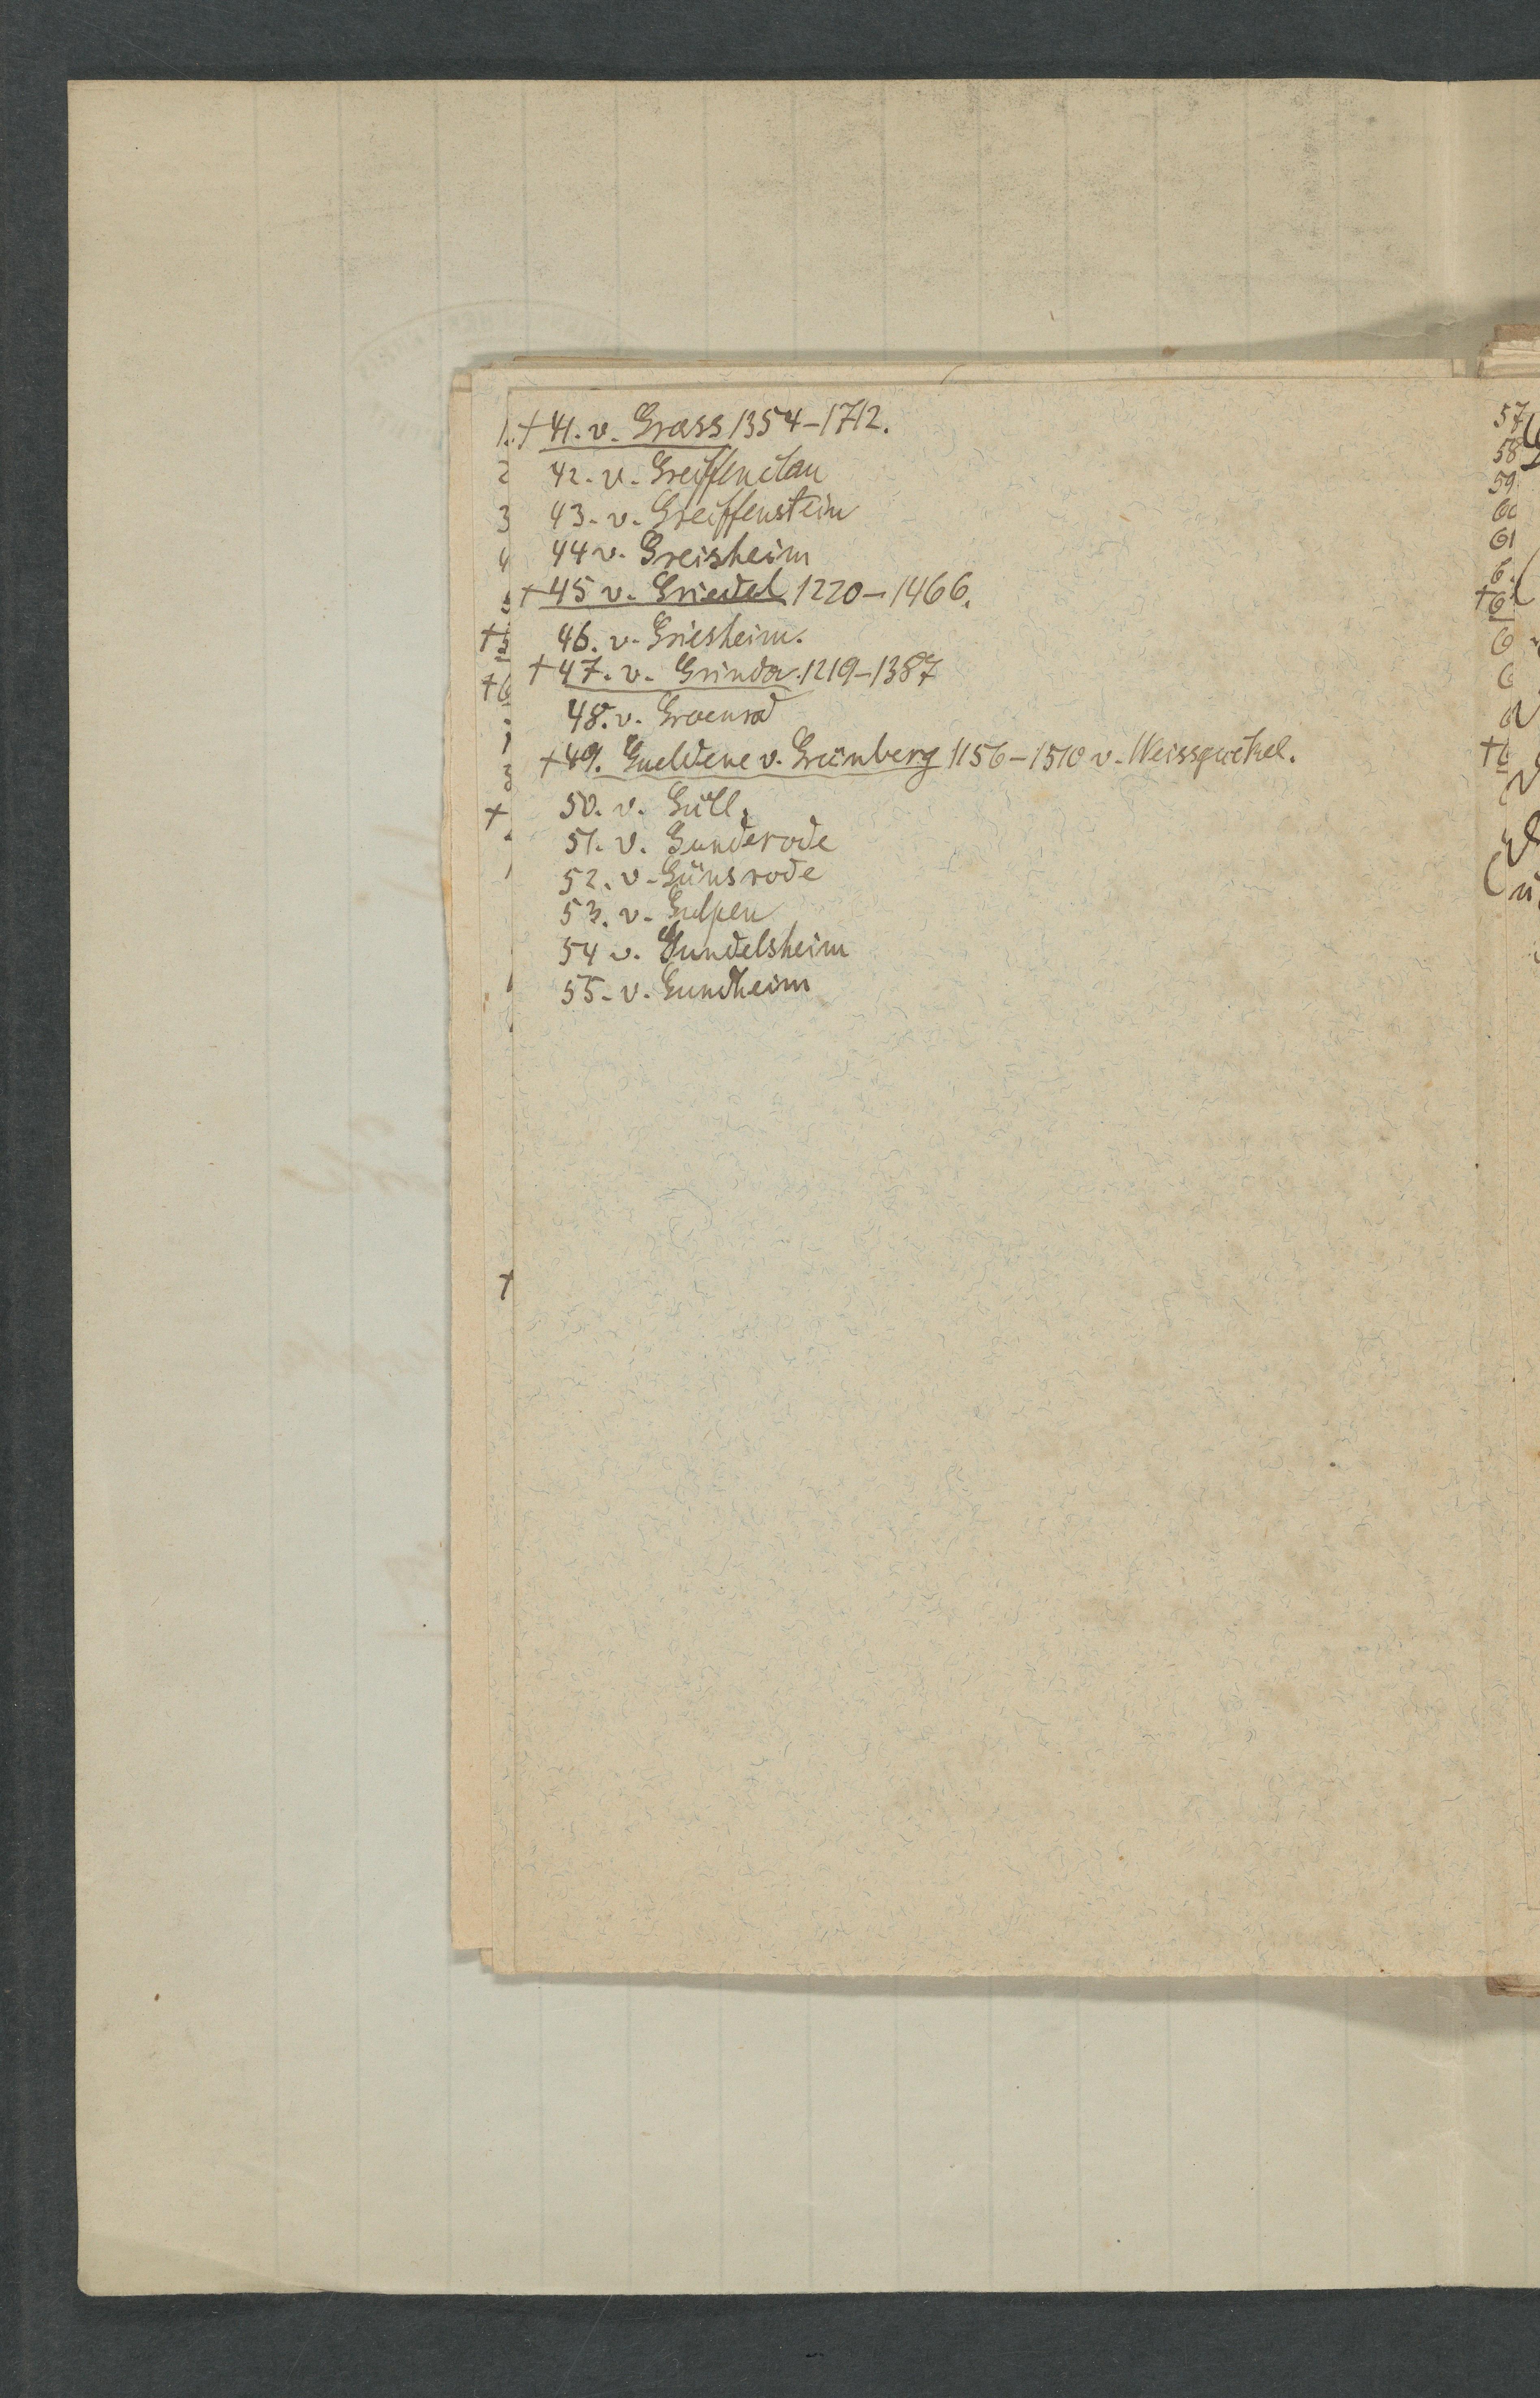 †41. v. Grass 1354-1712.
42. v. Greiffenclau
43. v. Greiffenstein
44 v. Greisheim
†45 v. Griedel 1220-1466.
46. v. Griesheim.
†47. v. Grinda. 1219-1387
48. v. Groenrod
†49. Gueldene v. Grünberg 1156-1510 v. Weissguckel.
50. v. Güll.
51. v. Gunderode
52. v. Günsrode
53. v. Gulpen
54 v. Gundelsheim
55. v. Gundheim
57
58
59
60
61